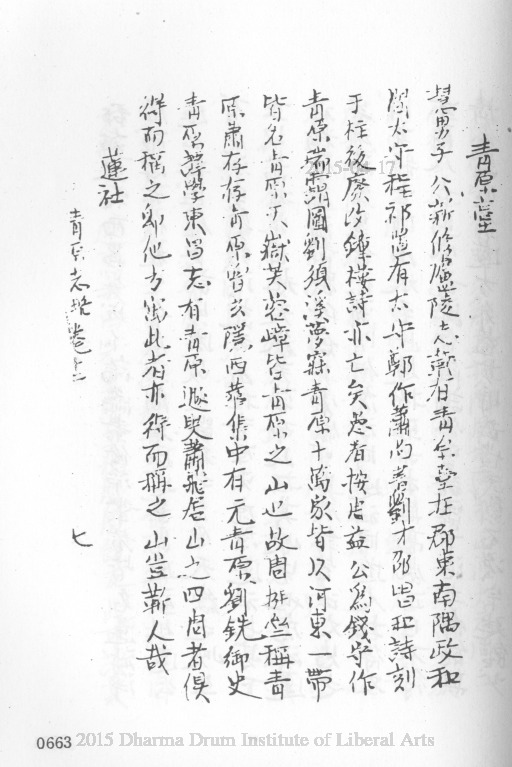 青原臺
慧男子 公蘄修廬陵志蘄有青原臺在郡東南隅政和
間太守程祁置有太守鄭作蕭尚書劉才邵唱和詩刻
于柱後廢改鐘樓詩亦亡矣愚者按周益公為錢守作
青原瑞露圖劉須溪夢寐青原十萬家皆以河東一帶
皆名青原天嶽芙蓉嶂皆青原之山也故周 稱青
原蕭存存青原皆玄隱西 集中有元青原劉銑御史
青原講學東昌志有青原遯叟蕭飛居山之四周者俱
得而稱之即他方寓此者亦得而稱之山豈蘄人哉
蓮社
青原志略卷十二
七
0663 2015 Dharma Drum Institute of Liberal Arts